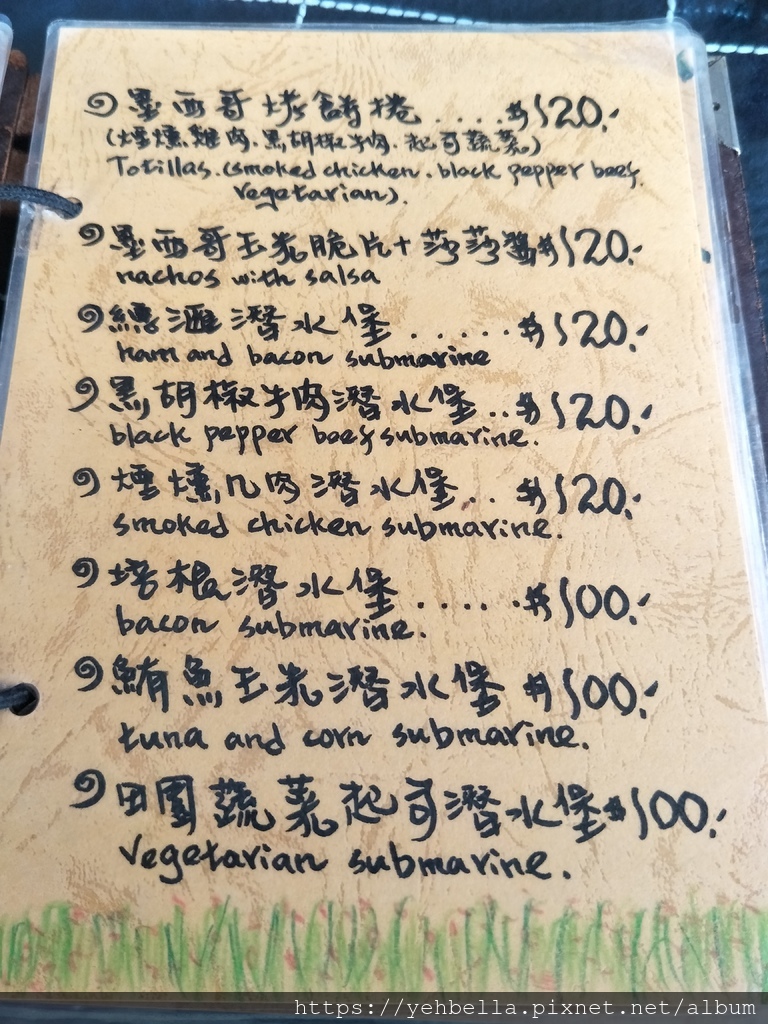 墨西哥烤餅捲....$120.-
(煙燻雞肉.黑胡椒牛肉.起司蔬菜)
Totillas.(smoked chicken.black pepper beef.
vegetarian).
墨西哥玉米脆片+莎莎醬$120.-
nachos with salsa
總匯潛水堡......$120.-
ham and bacon submarine
黑胡椒牛肉潛水堡..$120.-
black pepper beef submarine.
煙燻几肉潛水堡..$120.-
smoked chicken submarine.
培根潛水堡.....$100.-
bacon submarine.
鮪魚玉米潛水堡$100.-
tuna and corn submarine.
田園蔬菜起司潛水堡$100.-
vegetarian submarine.
https://yehbella.pixnet.net/album